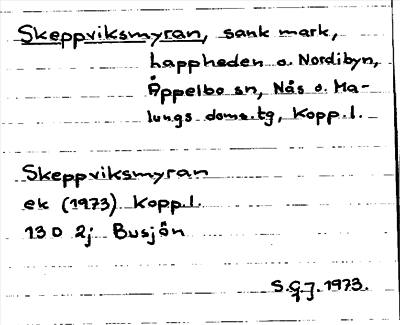 Skeppviksmyran, sank mark,
Lappheden o. Nordibyn,
Äppelbo sn, Nås o. Ma-
lungs doms.tg, Kopp.l.
Skeppviksmyran
ek (1973) Kopp.l.
13 D 2j Busjön
S.G.J. 1973.